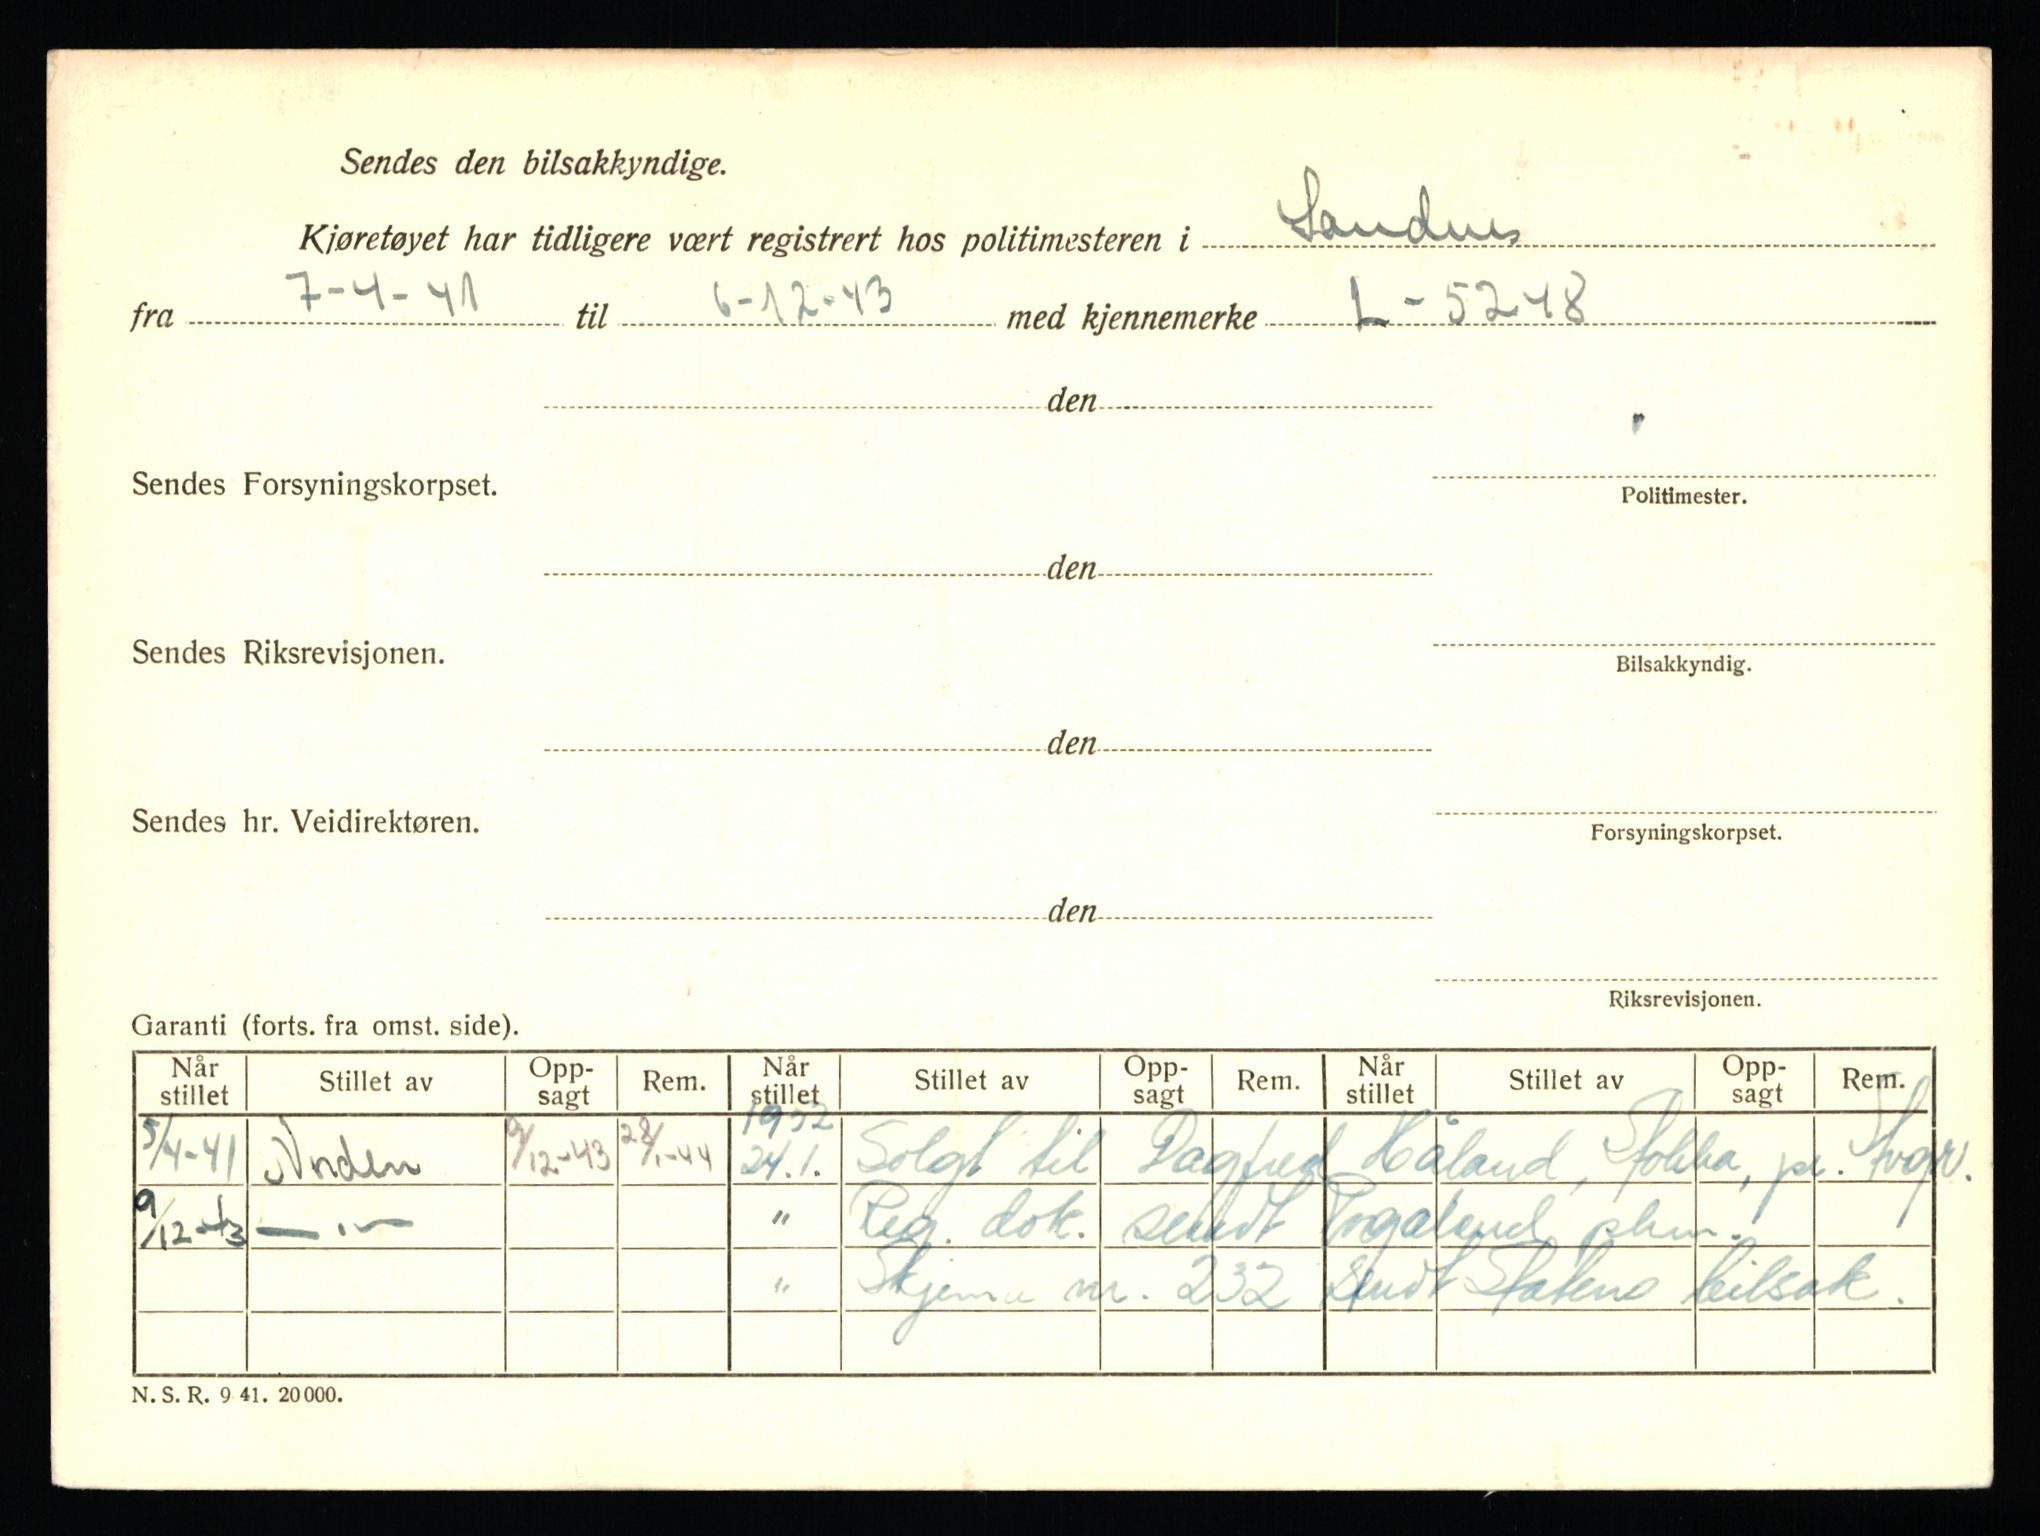 Sendes den bilsakkyndige.
Kjøretøyet har tidligere vært registrert hos politimesteren i Sandnes
fra 7-4-41 til 6-12-43 med kjennemerke L-5248
den
Sendes Forsyningskorpset.
Politimester.
den
Sendes Riksrevisjonen.
Bilsakkyndig.
den
Sendes hr. Veidirektøren.
Forsyningskorpset.
den
Riksrevisjonen.
Garanti (forts. fra omst. side).
Når stillet Stillet av Opp-sagt Rem. Når stillet Stillet av Opp-sagt Rem. Når stillet Stillet av Opp-sagt Rem.
1952
5/4-41 Norden 9/12-43 28/1-44 24.1. Solgt til Dagfred Håland, Stokka, pr. Stvgr.
9/12-43 — " — " Reg. dok. sendt Rogaland pkm.
" Skjema nr. 232 sendt Statens bilsak.
N. S. R. 9 41. 20 000.